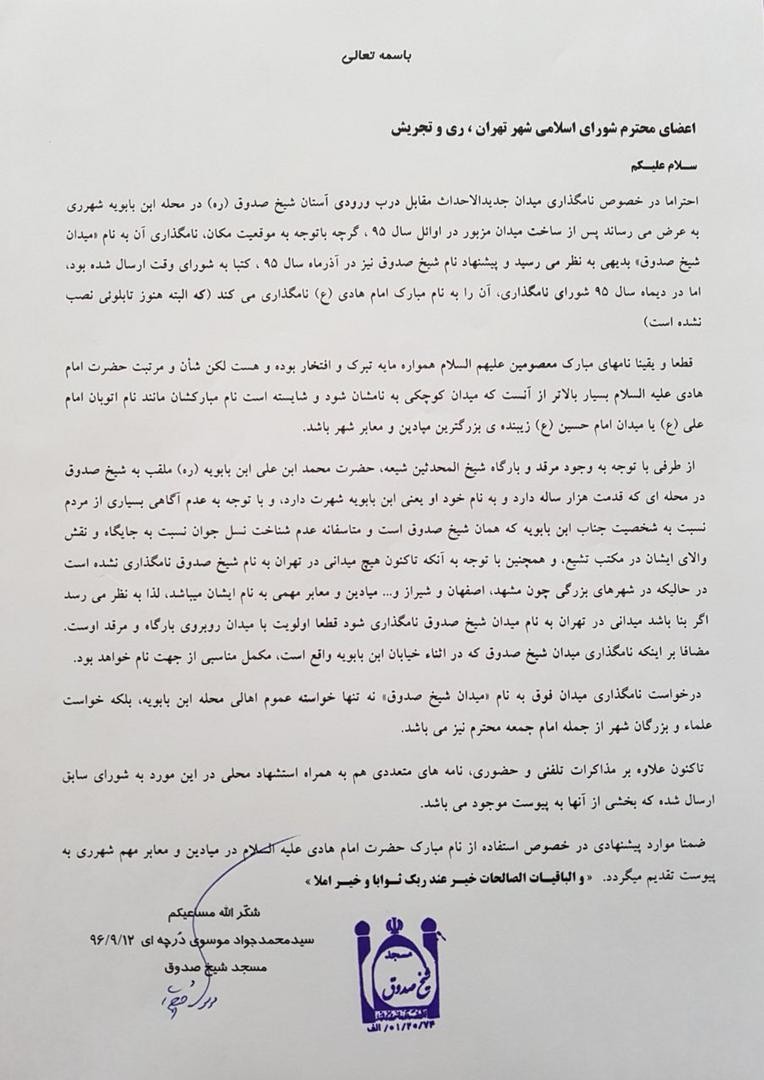 باسمه تعالی
اعضای محترم شورای اسلامی شهر تهران ، ری و تجریش
سلام علیکم
احتراما در خصوص نامگذاری میدان جدیدالاحداث مقابل درب ورودی آستان شیخ صدوق (ره) در محله ابن بابویه شهرری
به عرض می رساند پس از ساخت میدان مزبور در اوائل سال ۹۵ ، گرچه باتوجه به موقعیت مکان، نامگذاری آن به نام «میدان
شیخ صدوق» بدیهی به نظر می رسید و پیشنهاد نام شیخ صدوق نیز در آذرماه سال ۹۵ ، کتبا به شورای وقت ارسال شده بود،
اما در دیماه سال ۹۵ شورای نامگذاری، آن را به نام مبارک امام هادی (ع) نامگذاری می کند (که البته هنوز تابلوئی نصب
نشده است)
قطعا و یقینا نامهای مبارک معصومین علیهم السلام همواره مایه تبرک و افتخار بوده و هست لکن شأن و مرتبت حضرت امام
هادی علیه السلام بسیار بالاتر از آنست که میدان کوچکی به نامشان شود و شایسته است نام مبارکشان مانند نام اتوبان امام
علی (ع) یا میدان امام حسین (ع) زیبنده ی بزرگترین میادین و معابر شهر باشد.
از طرفی با توجه به وجود مرقد و بارگاه شیخ المحدثین شیعه، حضرت محمد ابن علی ابن بابویه (ره) ملقب به شیخ صدوق
در محله ای که قدمت هزار ساله دارد و به نام خود او یعنی ابن بابویه شهرت دارد، و با توجه به عدم آگاهی بسیاری از مردم
نسبت به شخصیت جناب ابن بابویه که همان شیخ صدوق است و متاسفانه عدم شناخت نسل جوان نسبت به جایگاه و نقش
والای ایشان در مکتب تشیع، و همچنین با توجه به آنکه تاکنون هیچ میدانی در تهران به نام شیخ صدوق نامگذاری نشده است
در حالیکه در شهرهای بزرگی چون مشهد، اصفهان و شیراز و... میادین و معابر مهمی به نام ایشان میباشد، لذا به نظر می رسد
اگر بنا باشد میدانی در تهران به نام میدان شیخ صدوق نامگذاری شود قطعا اولویت با میدان روبروی بارگاه و مرقد اوست.
مضافا بر اینکه نامگذاری میدان شیخ صدوق که در اثناء خیابان ابن بابویه واقع است، مکمل مناسبی از جهت نام خواهد بود.
درخواست نامگذاری میدان فوق به نام «میدان شیخ صدوق» نه تنها خواسته عموم اهالی محله ابن بابویه، بلکه خواست
علماء و بزرگان شهر از جمله امام جمعه محترم نیز می باشد.
تاکنون علاوه بر مذاکرات تلفنی و حضوری، نامه های متعددی هم به همراه استشهاد محلی در این مورد به شورای سابق
ارسال شده که بخشی از آنها به پیوست موجود می باشد.
ضمنا موارد پیشنهادی در خصوص استفاده از نام مبارک حضرت امام هادی علیه السلام در میادین و معابر مهم شهرری به
پیوست تقدیم میگردد. «و الباقیات الصالحات خیر عند ربک ثوابا و خیر املا»
شکّر الله مساعیکم
سیدمحمدجواد موسوی دُرچه ای ۹۶/۹/۱۲
مسجد شیخ صدوق
مسجد
شیخ صدوق
۰۱/۲۰/۷۴/الف